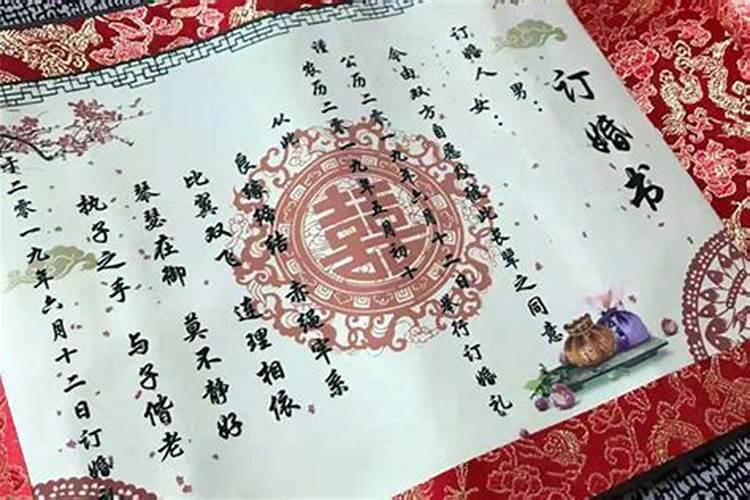 订婚书
订婚人 男：
女：
今由双方自愿及
彼此长辈之同意
公历二零一九年六月十二日举行订婚礼
谨 农历二零一九年五月初十
从此
良缘缔结 赤绳牢系
比翼双飞 连理相依
琴瑟在御 莫不静好
执子之手 与子偕老
于二零一九年六月十二日订婚